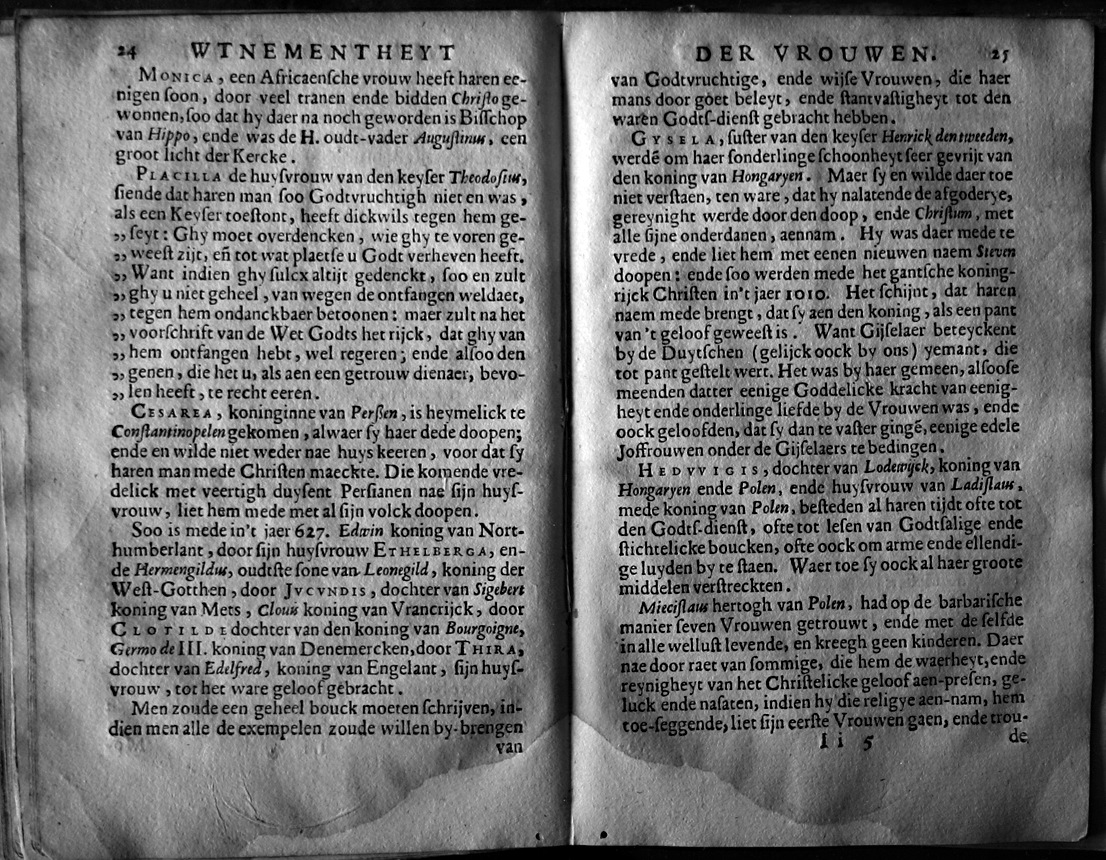 24 WTNEMENTHEYT
MONICA, een Africaenſche vrouw heeft haren ee-
nigen ſoon, door veel tranen ende bidden Chriſto ge-
wonnen, ſoo dat hy daer na noch geworden is Biſſchop
van Hippo, ende was de H. oudt-vader Auguſtinus, een
groot licht der Kercke.
PLACILLA de huyſvrouw van den keyſer Theodoſius,
ſiende dat haren man ſoo Godtvruchtigh niet en was,
als een Keyſer toeſtont, heeft dickwils tegen hem ge-
„ ſeyt: Ghy moet overdencken, wie ghy te voren ge-
„ weeſt zijt, en̄ tot wat plaetſe u Godt verheven heeft.
„ Want indien ghy ſulcx altijt gedenckt, ſoo en zult
„ ghy u niet geheel, van wegen de ontfangen weldaet,
„ tegen hem ondanckbaer betoonen: maer zult na het
„ voorſchrift van de Wet Godts het rijck, dat ghy van
„ hem ontfangen hebt, wel regeren; ende alſoo den
„ genen, die het u, als aen een getrouw dienaer, bevo-
„ len heeft, te recht eeren.
CESAREA, koninginne van Perßen, is heymelick te
Conſtantinopelen gekomen, alwaer ſy haer dede doopen;
ende en wilde niet weder nae huys keeren, voor dat ſy
haren man mede Chriſten maeckte. Die komende vre-
delick met veertigh duyſent Perſianen nae ſijn huyſ-
vrouw, liet hem mede met al ſijn volck doopen.
Soo is mede in't jaer 627. Edwin koning van Nort-
humberlant, door ſijn huyſvrouw ETHELBERGA, en-
de Hermengildus, oudtſte ſone van Leonegild, koning der
Weſt-Gotthen, door JVCVNDIS, dochter van Sigebert
koning van Mets, Clouis koning van Vrancrijck, door
CLOTILDE dochter van den koning van Bourgoigne,
Germo de III. koning van Denemercken, door THIRA,
dochter van Edelfred, koning van Engelant, ſijn huyſ-
vrouw, tot het ware geloof gebracht.
Men zoude een geheel bouck moeten ſchrijven, in-
dien men alle de exempelen zoude willen by-brengen
van
DER VROUWEN. 25
van Godtvruchtige, ende wijſe Vrouwen, die haer
mans door goet beleyt, ende ſtantvaſtigheyt tot den
waren Godtſ-dienſt gebracht hebben.
GYSELA, ſuſter van den keyſer Henrick den tweeden,
werdē om haer ſonderlinge ſchoonheyt ſeer gevrijt van
den koning van Hongaryen. Maer ſy en wilde daer toe
niet verſtaen, ten ware, dat hy nalatende de afgoderye,
gereynight werde door den doop, ende Chriſtum, met
alle ſijne onderdanen, aennam. Hy was daer mede te
vrede, ende liet hem met eenen nieuwen naem Steven
doopen: ende ſoo werden mede het gantſche koning-
rijck Chriſten in't jaer 1010. Het ſchijnt, dat haren
naem mede brengt, dat ſy aen den koning, als een pant
van 't geloof geweeſt is. Want Gijſelaer beteyckent
by de Duytſchen (gelijck oock by ons) yemant, die
tot pant geſtelt wert. Het was by haer gemeen, alſooſe
meenden datter eenige Goddelicke kracht van eenig-
heyt ende onderlinge liefde by de Vrouwen was, ende
oock geloofden, dat ſy dan te vaſter gingē, eenige edele
Joffrouwen onder de Gijſelaers te bedingen.
HEDVVIGIS, dochter van Lodewijck, koning van
Hongaryen ende Polen, ende huyſvrouw van Ladiſlaus,
mede koning van Polen, beſteden al haren tijdt ofte tot
den Godtſ-dienſt, ofte tot leſen van Godtſalige ende
ſtichtelicke boucken, ofte oock om arme ende ellendi-
ge luyden by te ſtaen. Waer toe ſy oock al haer groote
middelen verſtreckten.
Mieciſlaus hertogh van Polen, had op de barbariſche
manier ſeven Vrouwen getrouwt, ende met de ſelfde
in alle welluſt levende, en kreegh geen kinderen. Daer
nae door raet van ſommige, die hem de waerheyt, ende
reynigheyt van het Chriſtelicke geloof aen-preſen, ge-
luck ende naſaten, indien hy die religye aen-nam, hem
toe-ſeggende, liet ſijn eerſte Vrouwen gaen, ende trou-
I i 5 de